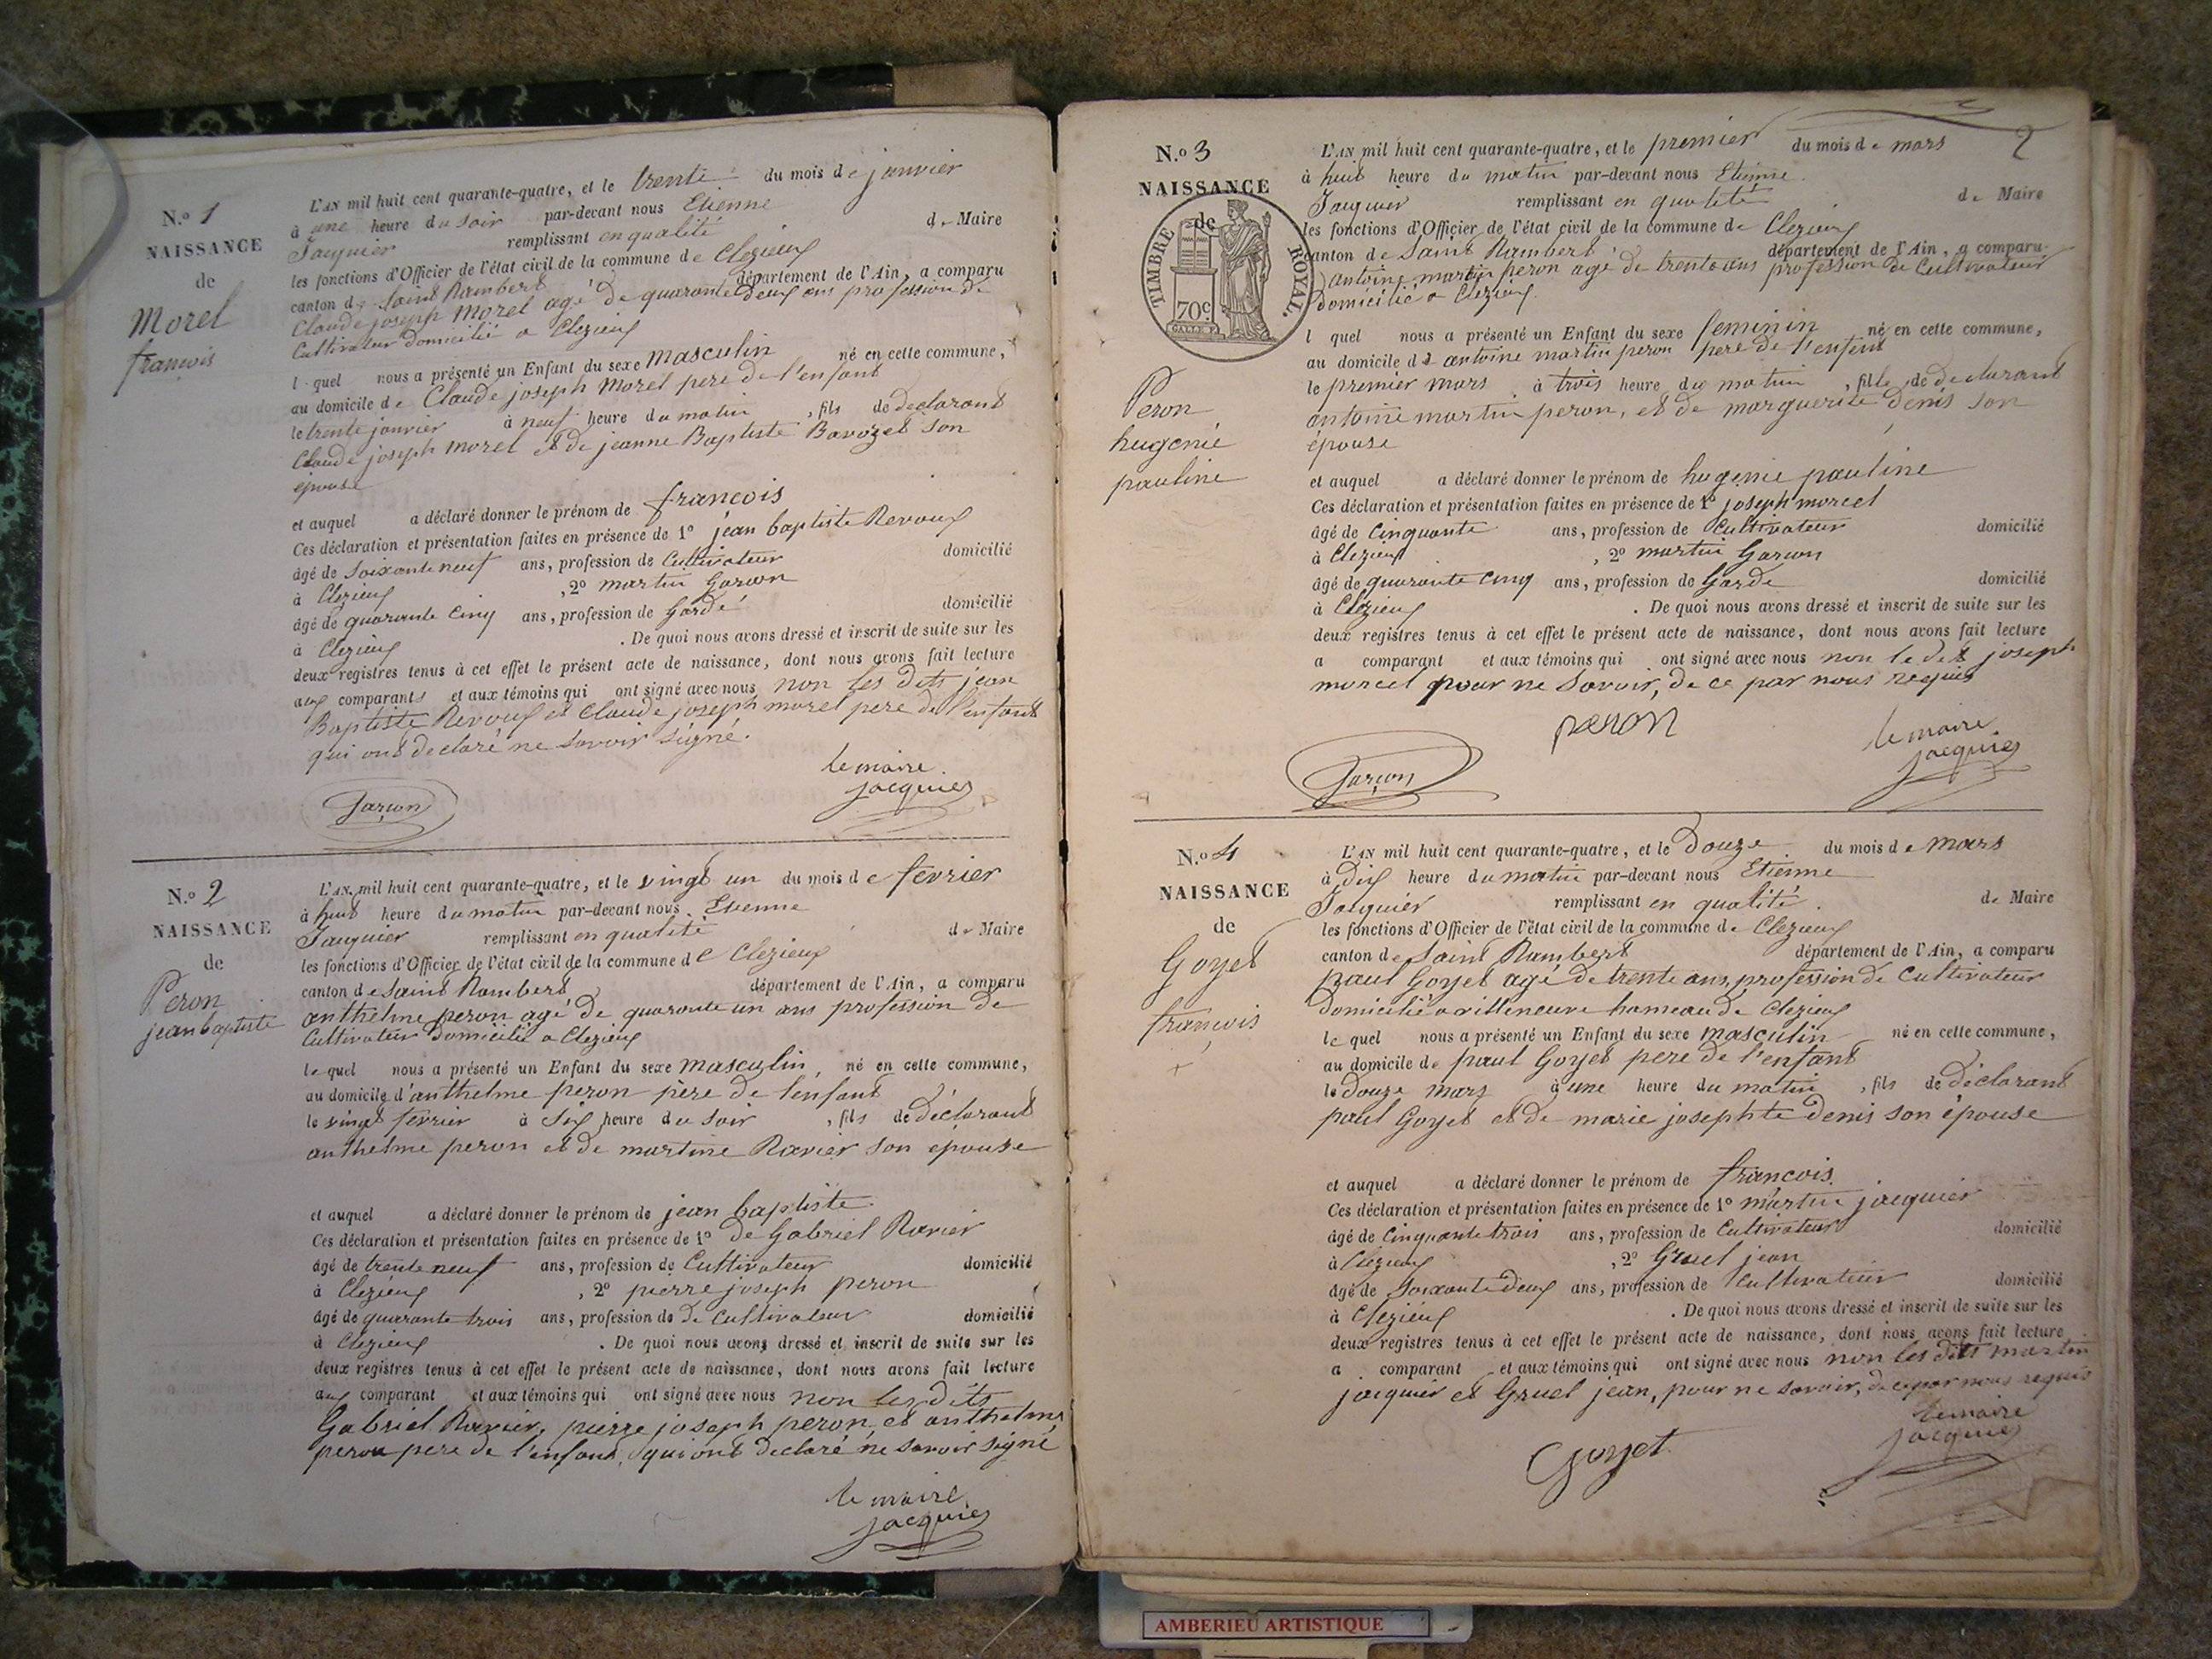 N.o 1
NAISSANCE
de
Morel
francois
L'AN mil huit cent quarante-quatre, et le trente du mois de janvier
à une heure du soir par-devant nous Etienne
Jacquier remplissant en qualité de Maire
les fonctions d'Officier de l'état civil de la commune de Clezieux
canton de Saint Rambert département de l'Ain, a comparu
Claude joseph Morel agé de quarante deux ans profession de
Cultivateur domicilié a Clezieux
l quel nous a présenté un Enfant du sexe masculin né en cette commune,
au domicile de Claude joseph Morel pere de l'enfant
le trente janvier à neuf heure du matin, fils de declarant
Claude joseph morel et de jeanne Baptiste Bavozet son
epouse
et auquel a déclaré donner le prénom de francois
Ces déclaration et présentation faites en présence de 1o jean baptiste Revoux
âgé de soixante neuf ans, profession de Cultivateur domicilié
à Clezieux, 2o martin Garcon
âgé de quarante cinq ans, profession de Garde domicilié
à Clezieux. De quoi nous avons dressé et inscrit de suite sur les
deux registres tenus à cet effet le présent acte de naissance, dont nous avons fait lecture
aux comparants et aux témoins qui ont signé avec nous non les dits jean
Baptiste Revoux et Claude joseph morel pere de l'enfant
qui ont declaré ne savoir signé.
le maire
jacquier
Garçon
N.o 2
NAISSANCE
de
Peron
jean baptiste
L'AN mil huit cent quarante-quatre, et le vingt un du mois de fevrier
à huit heure du matin par-devant nous Etienne
Jacquier remplissant en qualité de Maire
les fonctions d'Officier de l'état civil de la commune de Clezieux
canton de Saint Rambert département de l'Ain, a comparu
anthelme peron agé de quarante un ans profession de
Cultivateur domicilié a Clezieux
le quel nous a présenté un Enfant du sexe masculin, né en cette commune,
au domicile d'anthelme peron père de l'enfant
le vingt fevrier à six heure du soir, fils de déclarant
anthelme peron et de martine Ravier son epouse
et auquel a déclaré donner le prénom de jean baptiste
Ces déclaration et présentation faites en présence de 1o de Gabriel Ravier
âgé de trente neuf ans, profession de Cultivateur domicilié
à Clezieux, 2o pierre joseph peron
âgé de quarante trois ans, profession de de Cultivateur domicilié
à Clezieux. De quoi nous avons dressé et inscrit de suite sur les
deux registres tenus à cet effet le présent acte de naissance, dont nous avons fait lecture
aux comparant et aux témoins qui ont signé avec nous non les dits
Gabriel Ravier, pierre joseph peron, et anthelme
peron pere de l'enfant, qui ont declaré ne savoir signé
le maire
jacquier
2
N.o 3
NAISSANCE
de
TIMBRE ROYAL.
70c
Peron
hugenie
pauline
L'AN mil huit cent quarante-quatre, et le premier du mois de mars
à huit heure du matin par-devant nous Etienne
Jacquier remplissant en qualité de Maire
les fonctions d'Officier de l'état civil de la commune de Clezieux
canton de Saint Rambert département de l'Ain, a comparu
antoine martin peron agé de trente ans profession de Cultivateur
domicilié a Clezieux
l quel nous a présenté un Enfant du sexe feminin né en cette commune,
au domicile de antoine martin peron pere de l'enfent
le premier mars à trois heure du matin, fille de declarant
antoine martin peron, et de marguerite denis son
épouse
et auquel a déclaré donner le prénom de hugenie pauline
Ces déclaration et présentation faites en présence de 1o joseph morcel
âgé de Cinquante ans, profession de Cultivateur domicilié
à Clezieux, 2o martin Garcon
âgé de quarante cinq ans, profession de Garde domicilié
à Clezieux. De quoi nous avons dressé et inscrit de suite sur les
deux registres tenus à cet effet le présent acte de naissance, dont nous avons fait lecture
a comparant et aux témoins qui ont signé avec nous non le dit joseph
morcel pour ne savoir, de ce par nous requis
peron
le maire
jacquier
Garçon
N.o 4
NAISSANCE
de
Goyet
francois
L'AN mil huit cent quarante-quatre, et le douze du mois de mars
à dix heure du matin par-devant nous Etienne
Jacquier remplissant en qualité de Maire
les fonctions d'Officier de l'état civil de la commune de Clezieux
canton de Saint Rambert département de l'Ain, a comparu
paul Goyet agé de trente ans, profession de Cultivateur
domicilié a villeneuve hameau de Clezieux
le quel nous a présenté un Enfant du sexe masculin né en cette commune,
au domicile de paul Goyet pere de l'enfant
le douze mars à une heure du matin, fils de déclarant
paul Goyet et de marie josephte denis son épouse
et auquel a déclaré donner le prénom de francois
Ces déclaration et présentation faites en présence de 1o martin jacquier
âgé de Cinquante trois ans, profession de Cultivateur domicilié
à Clezieux, 2o Gruel jean
âgé de Soixante deux ans, profession de Cultivateur domicilié
à Clezieux. De quoi nous avons dressé et inscrit de suite sur les
deux registres tenus à cet effet le présent acte de naissance, dont nous avons fait lecture
a comparant et aux témoins qui ont signé avec nous non les dits martin
jacquier et Gruel jean, pour ne savoir, de ce par nous requis
le maire
jacquier
Goyet
AMBERIEU ARTISTIQUE